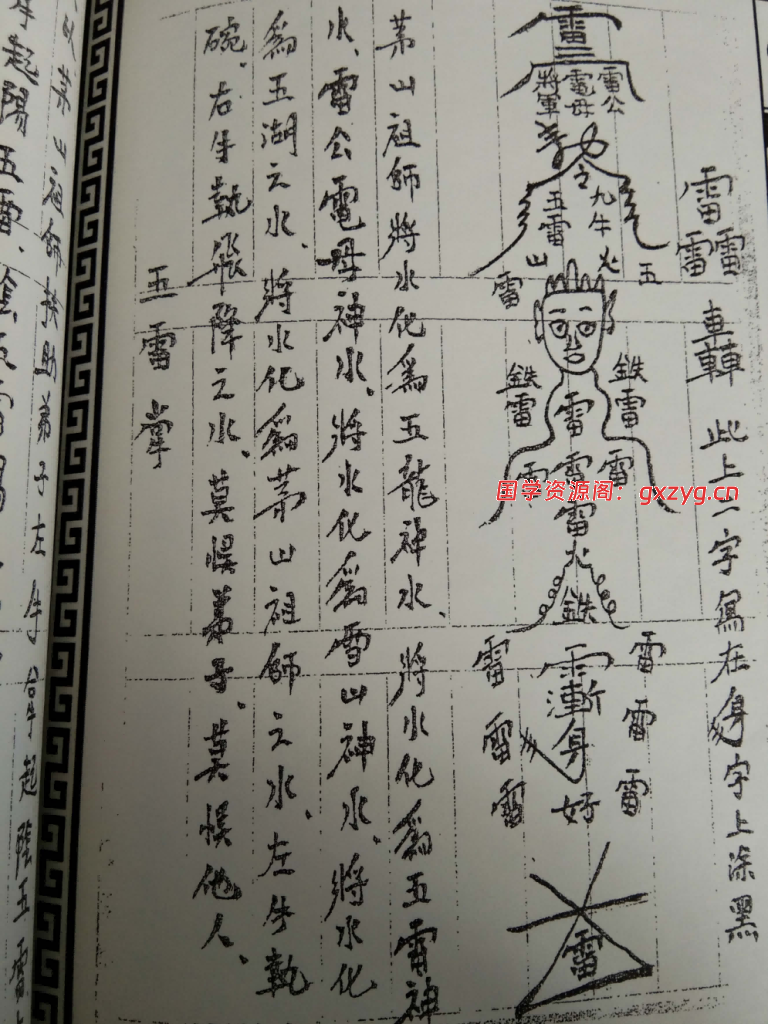 雷
雷雷
轟 此上二字寫在身字上涂黑
雷
三
雷公
電母
將軍
令
九牛
五雷
火
山
五
雷
鉄雷
鉄雷
雷
雷
雷
雷
雷
火
鉄
雷
雷
雷
雷
雷
雷
漸
身
好
雷
茅山祖師將水化爲五龍神水、將水化爲五雷神
水、雷公電母神水、將水化爲雪山神水、將水化
爲五湖之水、將水化爲茅山祖師之水、左手執
碗、右手執飛降之水、莫悮弟子、莫悮他人、
五雷掌
茅山祖師扶助弟子左手台手起陰五雷
手起陽五雷、陰五雷陽
国学资源阁：gxzyg.cn